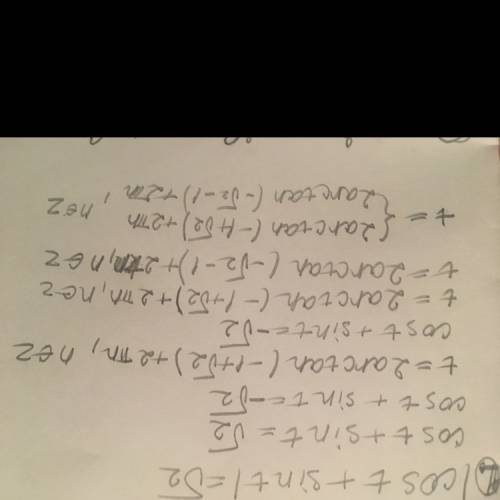 2) |cos t + sin t| = √2
cos t + sin t = √2
cos t + sin t = -√2
t = 2arctan(-1+√2)+2πn, n∈Z
cos t + sin t = -√2
t = 2arctan(-1+√2)+2πn, n∈Z
t = 2arctan(-√2-1)+2πn, n∈Z
t = { 2arctan(-1+√2)+2πn
2arctan(-√2-1)+2πn, n∈Z